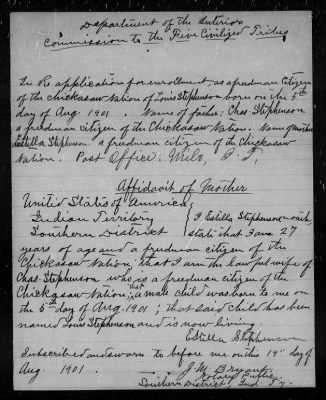 Department of the Interior
Commission to the Five Civilized Tribes
In Re application for enrollment, as a freedman Citizen
of the Chickasaw Nation of Louis Stephenson born on the 5th
day of Aug. 1901. Name of father: Chas. Stephenson
a freedman citizen of the Chickasaw Nation. Name of mother
Estella Stephenson a freedman citizen of the Chickasaw
Nation. Post Office: Milo, I. T.
Affidavit of Mother
United States of America
Indian Territory
Southern District
I Estella Stephenson on oath,
state that I am 27
years of age and a freedman citizen of the
Chickasaw Nation; that I am the lawful wife of
Chas. Stephenson who is a freedman citizen of the
Chickasaw Nation; that a male child was born to me on
the 5th day of Aug. 1901; that said child has been
named Louis Stephenson and is now living.
Estella Stephenson
Subscribed and sworn to before me on this 19" day of
Aug. 1901.
J. M. Bryant
Notary Public,
Southern District, Ind. Ty.